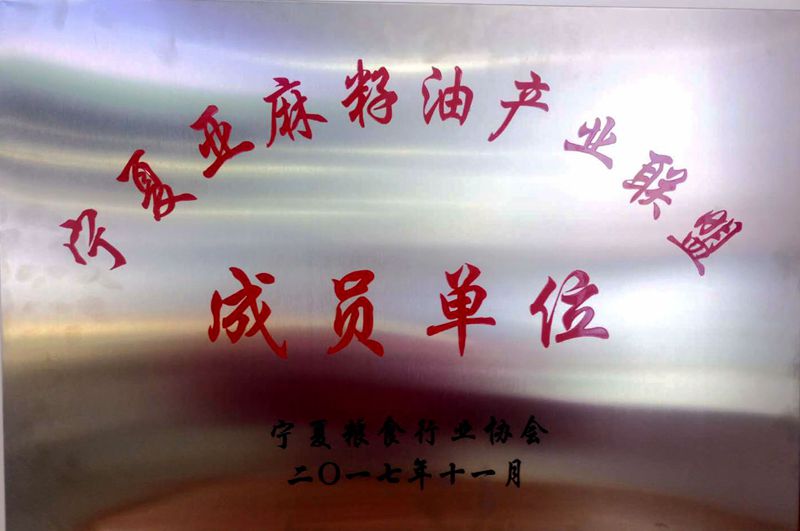 宁夏亚麻籽油产业联盟
成员单位
宁夏粮食行业协会
二〇一七年十一月